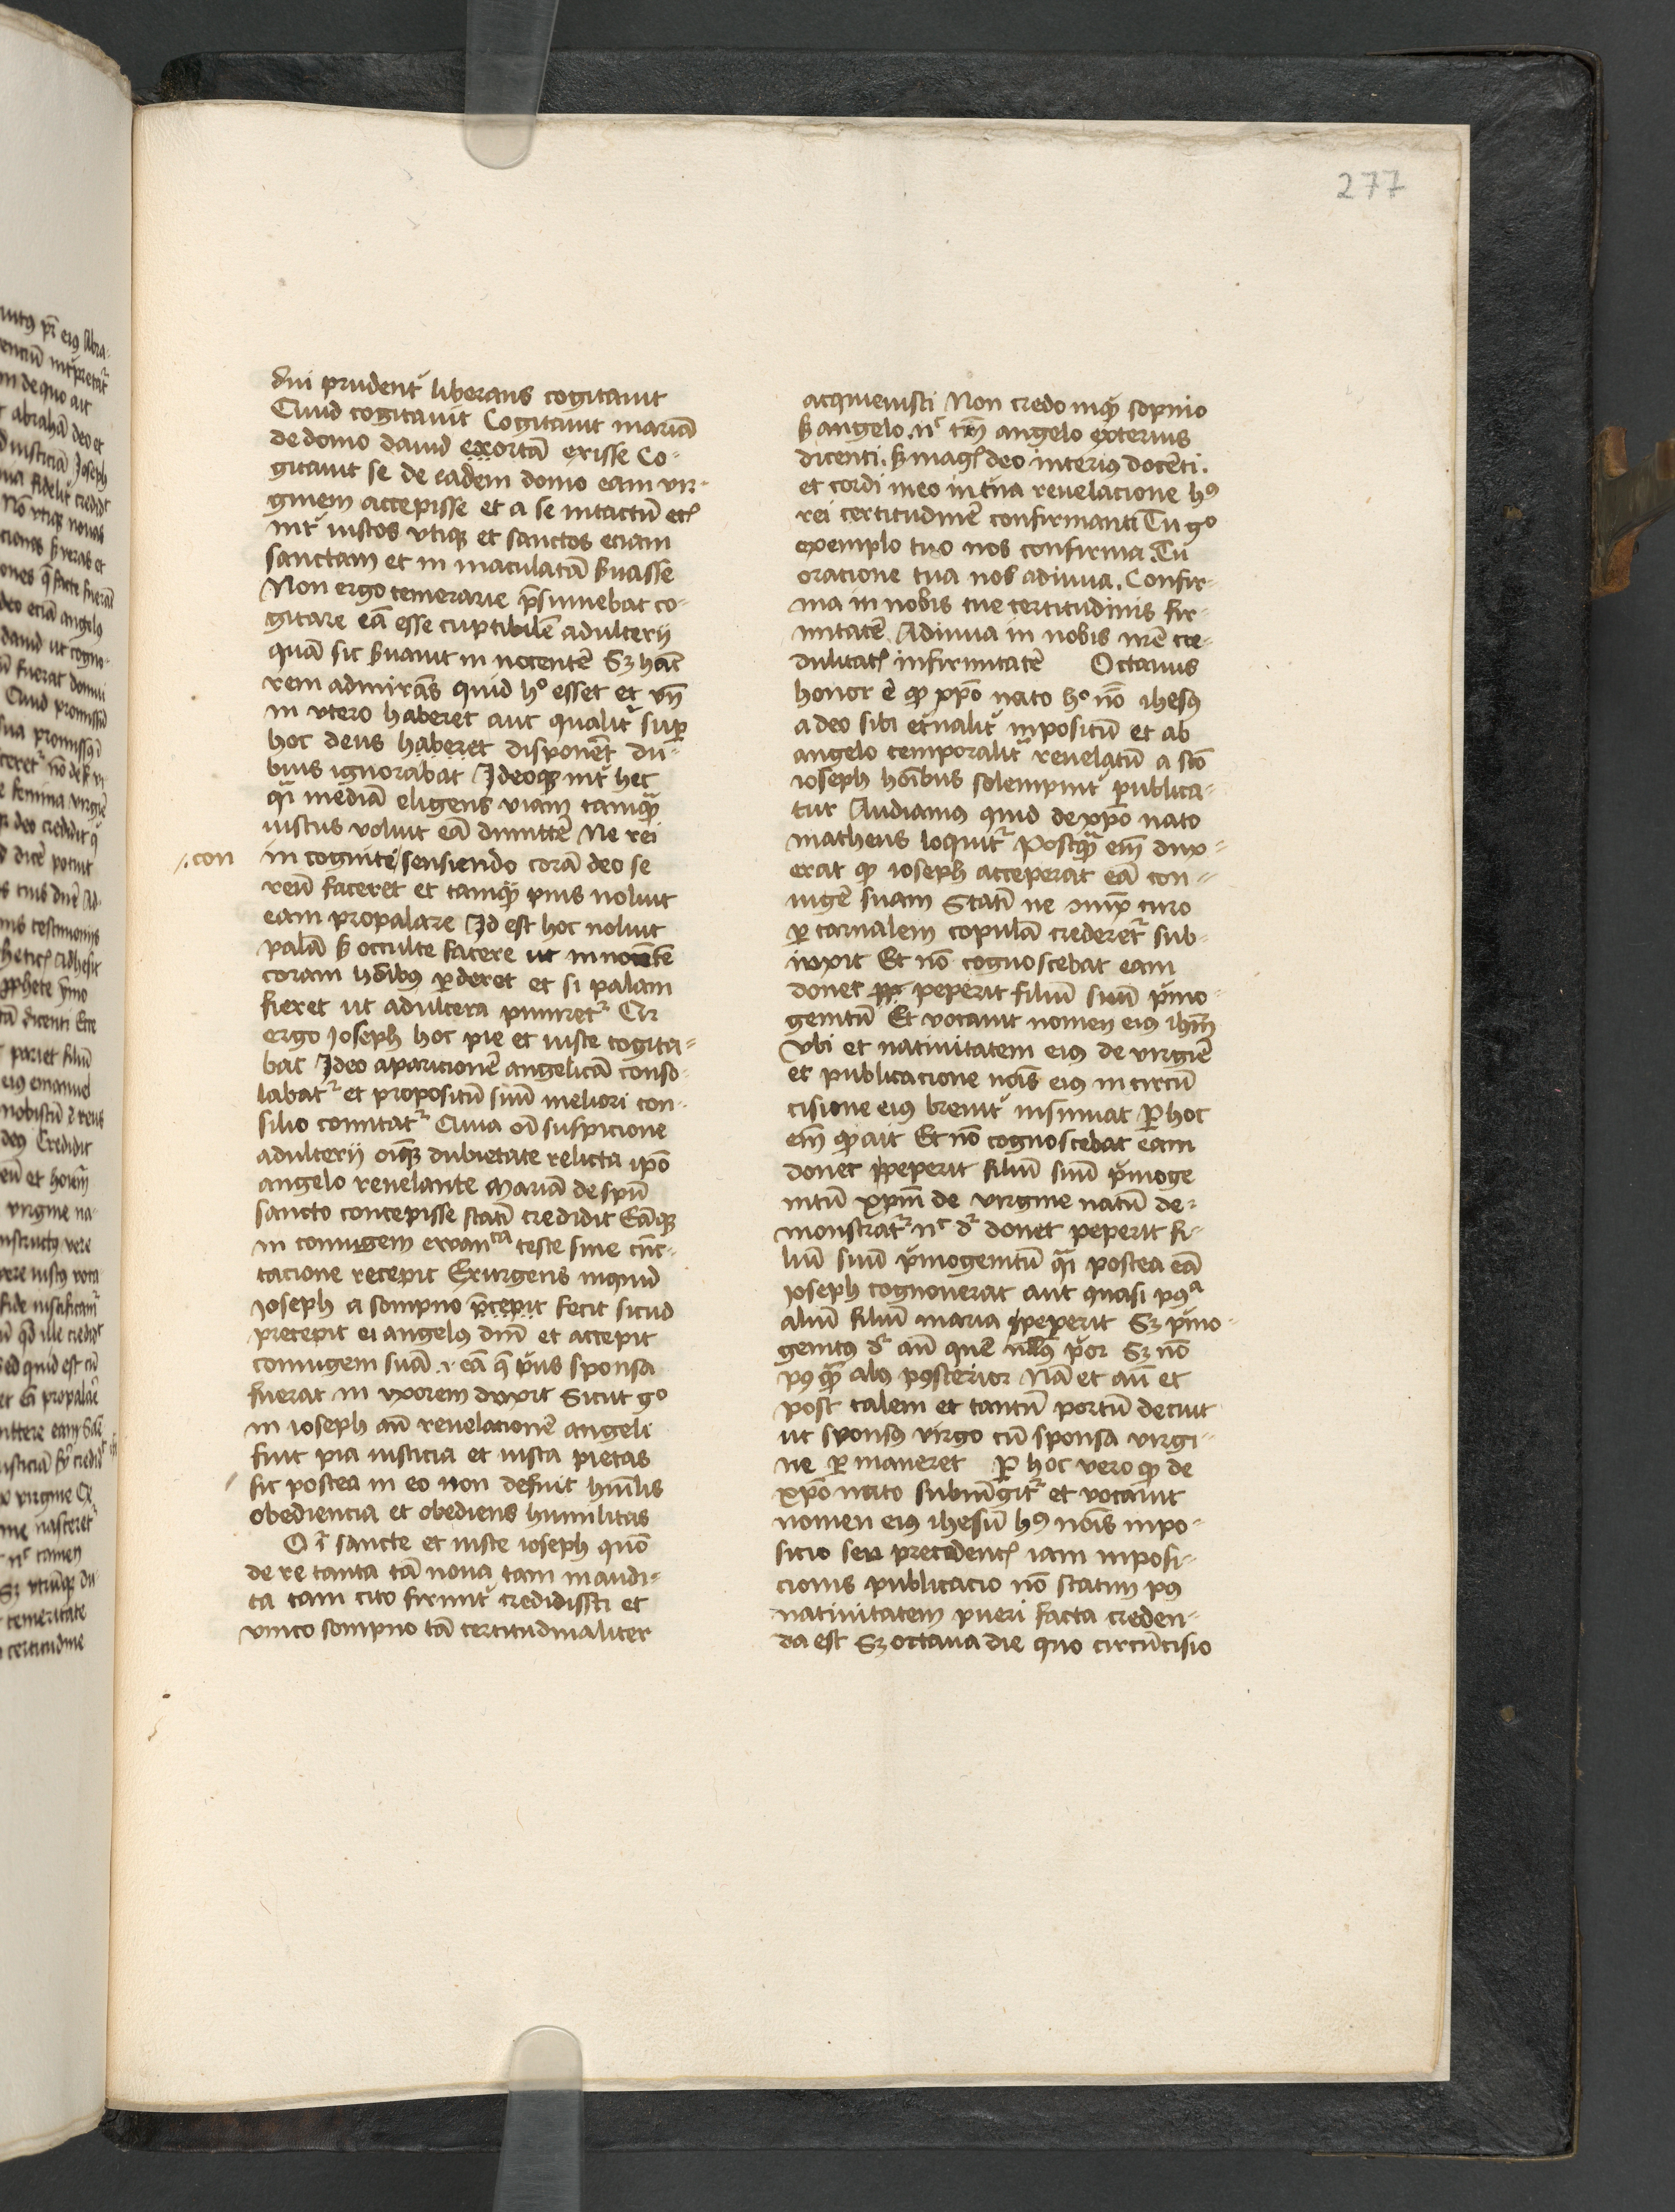 277
dīu prudent᷑ liberans cogitauit
Quid cogitauit Cogitauit mariā
de domo dauid exortā exisse Co-
gitauit se de eadem domo eam vir-
ginem accepisse et a se intactū etꝭ
int᷑ iustos vtiqꝫ et sanctos eciam
sanctam et in maculatā ẜuasse
Non ergo temerarie p̄sumebat co-
gitare eā esse cuptibilē adulterij
quā sic ẜuauit in nocentē Sꝫ hāc
rem admirās quid hͦ esset et vn̄
in vtero haberet aut qualit᷑ suꝑ
hoc deus haberet disponēt du-
bius ignorabat Ideoqꝫ int᷑ hec
qͣi mediā eligens viam tamqͣꝫ
iustus voluit eā dimittē Ne rei
con
in cognite sensiendo corā deo se
reū faceret et tamqͣꝫ pius noluit
eam propalare Id est hoc noluit
palā ẜ occulte facere ut innocētē
coram hoībus ꝑderet et si palam
fieret ut adultera puniret᷑ Cū
ergo Joseph hoc pie et iuste cogita-
bat Ideo aparicionē angelicā conso-
labat᷑ et propositū suū meliori con-
silio comitat᷑ Quia oī suspicione
adulterij oīqꝫ dubietate relicta ip̄o
angelo reuelante Mariā de spū
sancto concepisse statī credidit Eāqꝫ
in coniugem ewanᵗᵃ teste sine cūc-
tacione recepit Exurgens inquid
Joseph a sompno p̄cepit fecit sicud
precepit ei angelus dnī et accepit
coniugem suā .i. eā q̄ p̉us sponsa
fuerat in vxorem duxit Sicut gͦ
in ioseph an̄ reuelacionē angeli
fuit pia iusticia et iusta pietas
sic postea in eo non defuit huīlis
obediencia et obediens humilitas
O ī sancte et iuste ioseph quō
de re tanta tā noua tam inaudi-
ta tam cito firmit᷑ credidissti et
vnico sompno tā certitudinaliter
acquieuisti Non credo inqͣ sopnio
ẜ angelo. nͨ tm̄ angelo exterius
dicenti. ẜ magꝭ deo interiꝰ docēti.
et cordi meo in tua reuelacione hꝰ
rei certitudinē confirmanti Tu gͦ
exemplo tuo nos confirma. Tu
oracione tua nos adiuua. Confir-
ma in nobis tue certitudinis fir-
mitatē Adiuua in nobis nrē cre-
dulitatꝭ infirmitatē Octauus
honor ē qꝫ xpō nato hͦ nō ihesꝰ
a deo sibi et᷑nalit᷑ inpositū et ab
angelo temporalit᷑ reuelatū a scō
ioseph hoībus solempnit᷑ publica-
tur Audiamꝰ quid de xpō nato
matheus loquit᷑ Postqͣꝫ em̄ dix-
erat qꝫ ioseph acceperat eā con-
iugē suam Statī ne
ꝑ carnalem copulā crederet᷑ sub-
iuxit Et nō cognoscebat eam
donec peperit filiū suū p̉mo-
genitū Et vocauit nomen eiꝰ ihm̄
Vbi et natiuitatem eiꝰ de virgiē
et publicacione noīs eiꝰ in circū
cisione eiꝰ breuit᷑ insinuat Ꝑ hoc
em̄ qꝫ ait Et nō cognoscebat eam
donec peperit filiū suū p̉moge
nitū xpm̄ de virgine natū de-
monstrat᷑ nͨ d᷑ donec peperit fi-
liū suū p̉mogenitū qͣi postea eā
Joseph cognouerat aut quasi pꝰᵃ
aliū filiū maria peperit Sꝫ p̉mo-
genitꝰ d᷑ an̄ quē nullꝰ p̉or Sꝫ nō
pꝰ qͣꝫ aliꝰ pꝰsterior Nā et an̄ et
post talem et tantū portū decuit
ut sponsꝰ virgo cū sponsa virgi-
ne ꝑ maneret Ꝑ hoc vero qꝫ de
xpō nato subiūgit᷑ et vocauit
nomen eiꝰ ihesū hꝰ noīs inpo-
sicio seu precedentꝭ iam inposi-
cionis publicacio nō statim pꝰ
natiuitatem pueri facta creden-
da est Sꝫ octaua die quo circūcisio